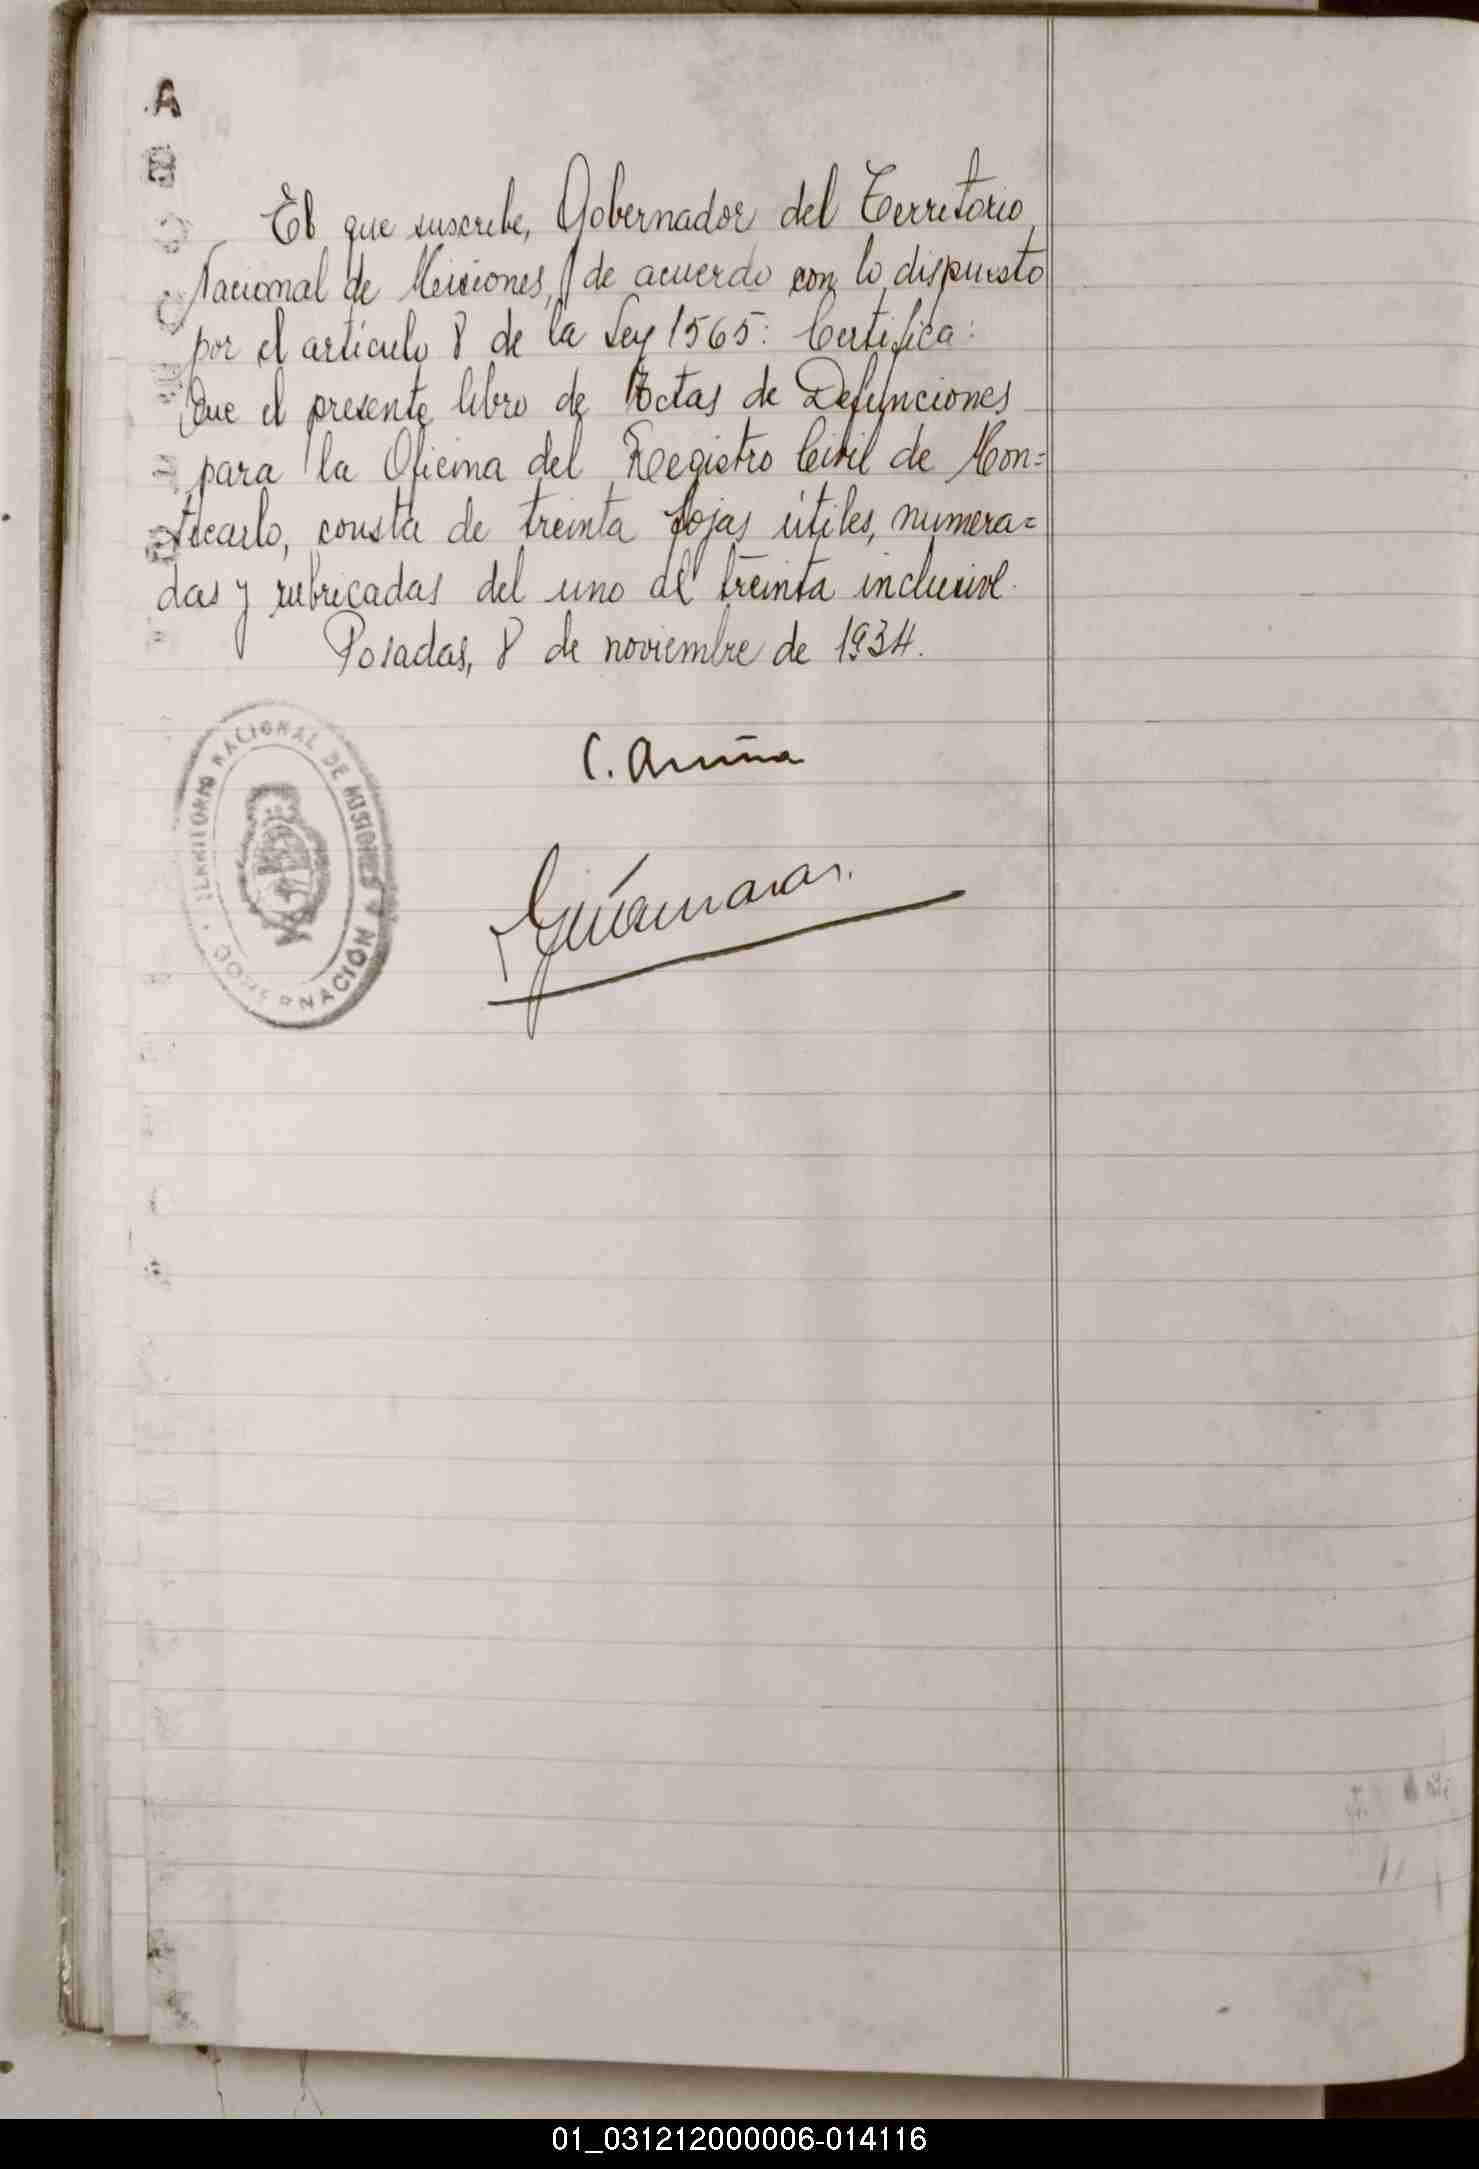 A
El que suscribe, Gobernador del Territorio
Nacional de Misiones, de acuerdo con lo dispuesto
por el artículo 8 de la Ley 1565: Certifica:
Que el presente libro de Actas de Defunciones
para la Oficina del Registro Civil de Mon=
tecarlo, consta de treinta fojas útiles, numera=
das y rubricadas del uno al treinta inclusive.
Posadas, 8 de noviembre de 1934.
C. Acuña
TERRITORIO NACIONAL DE MISIONES
GOBERNACIÓN
01_031212000006-014116